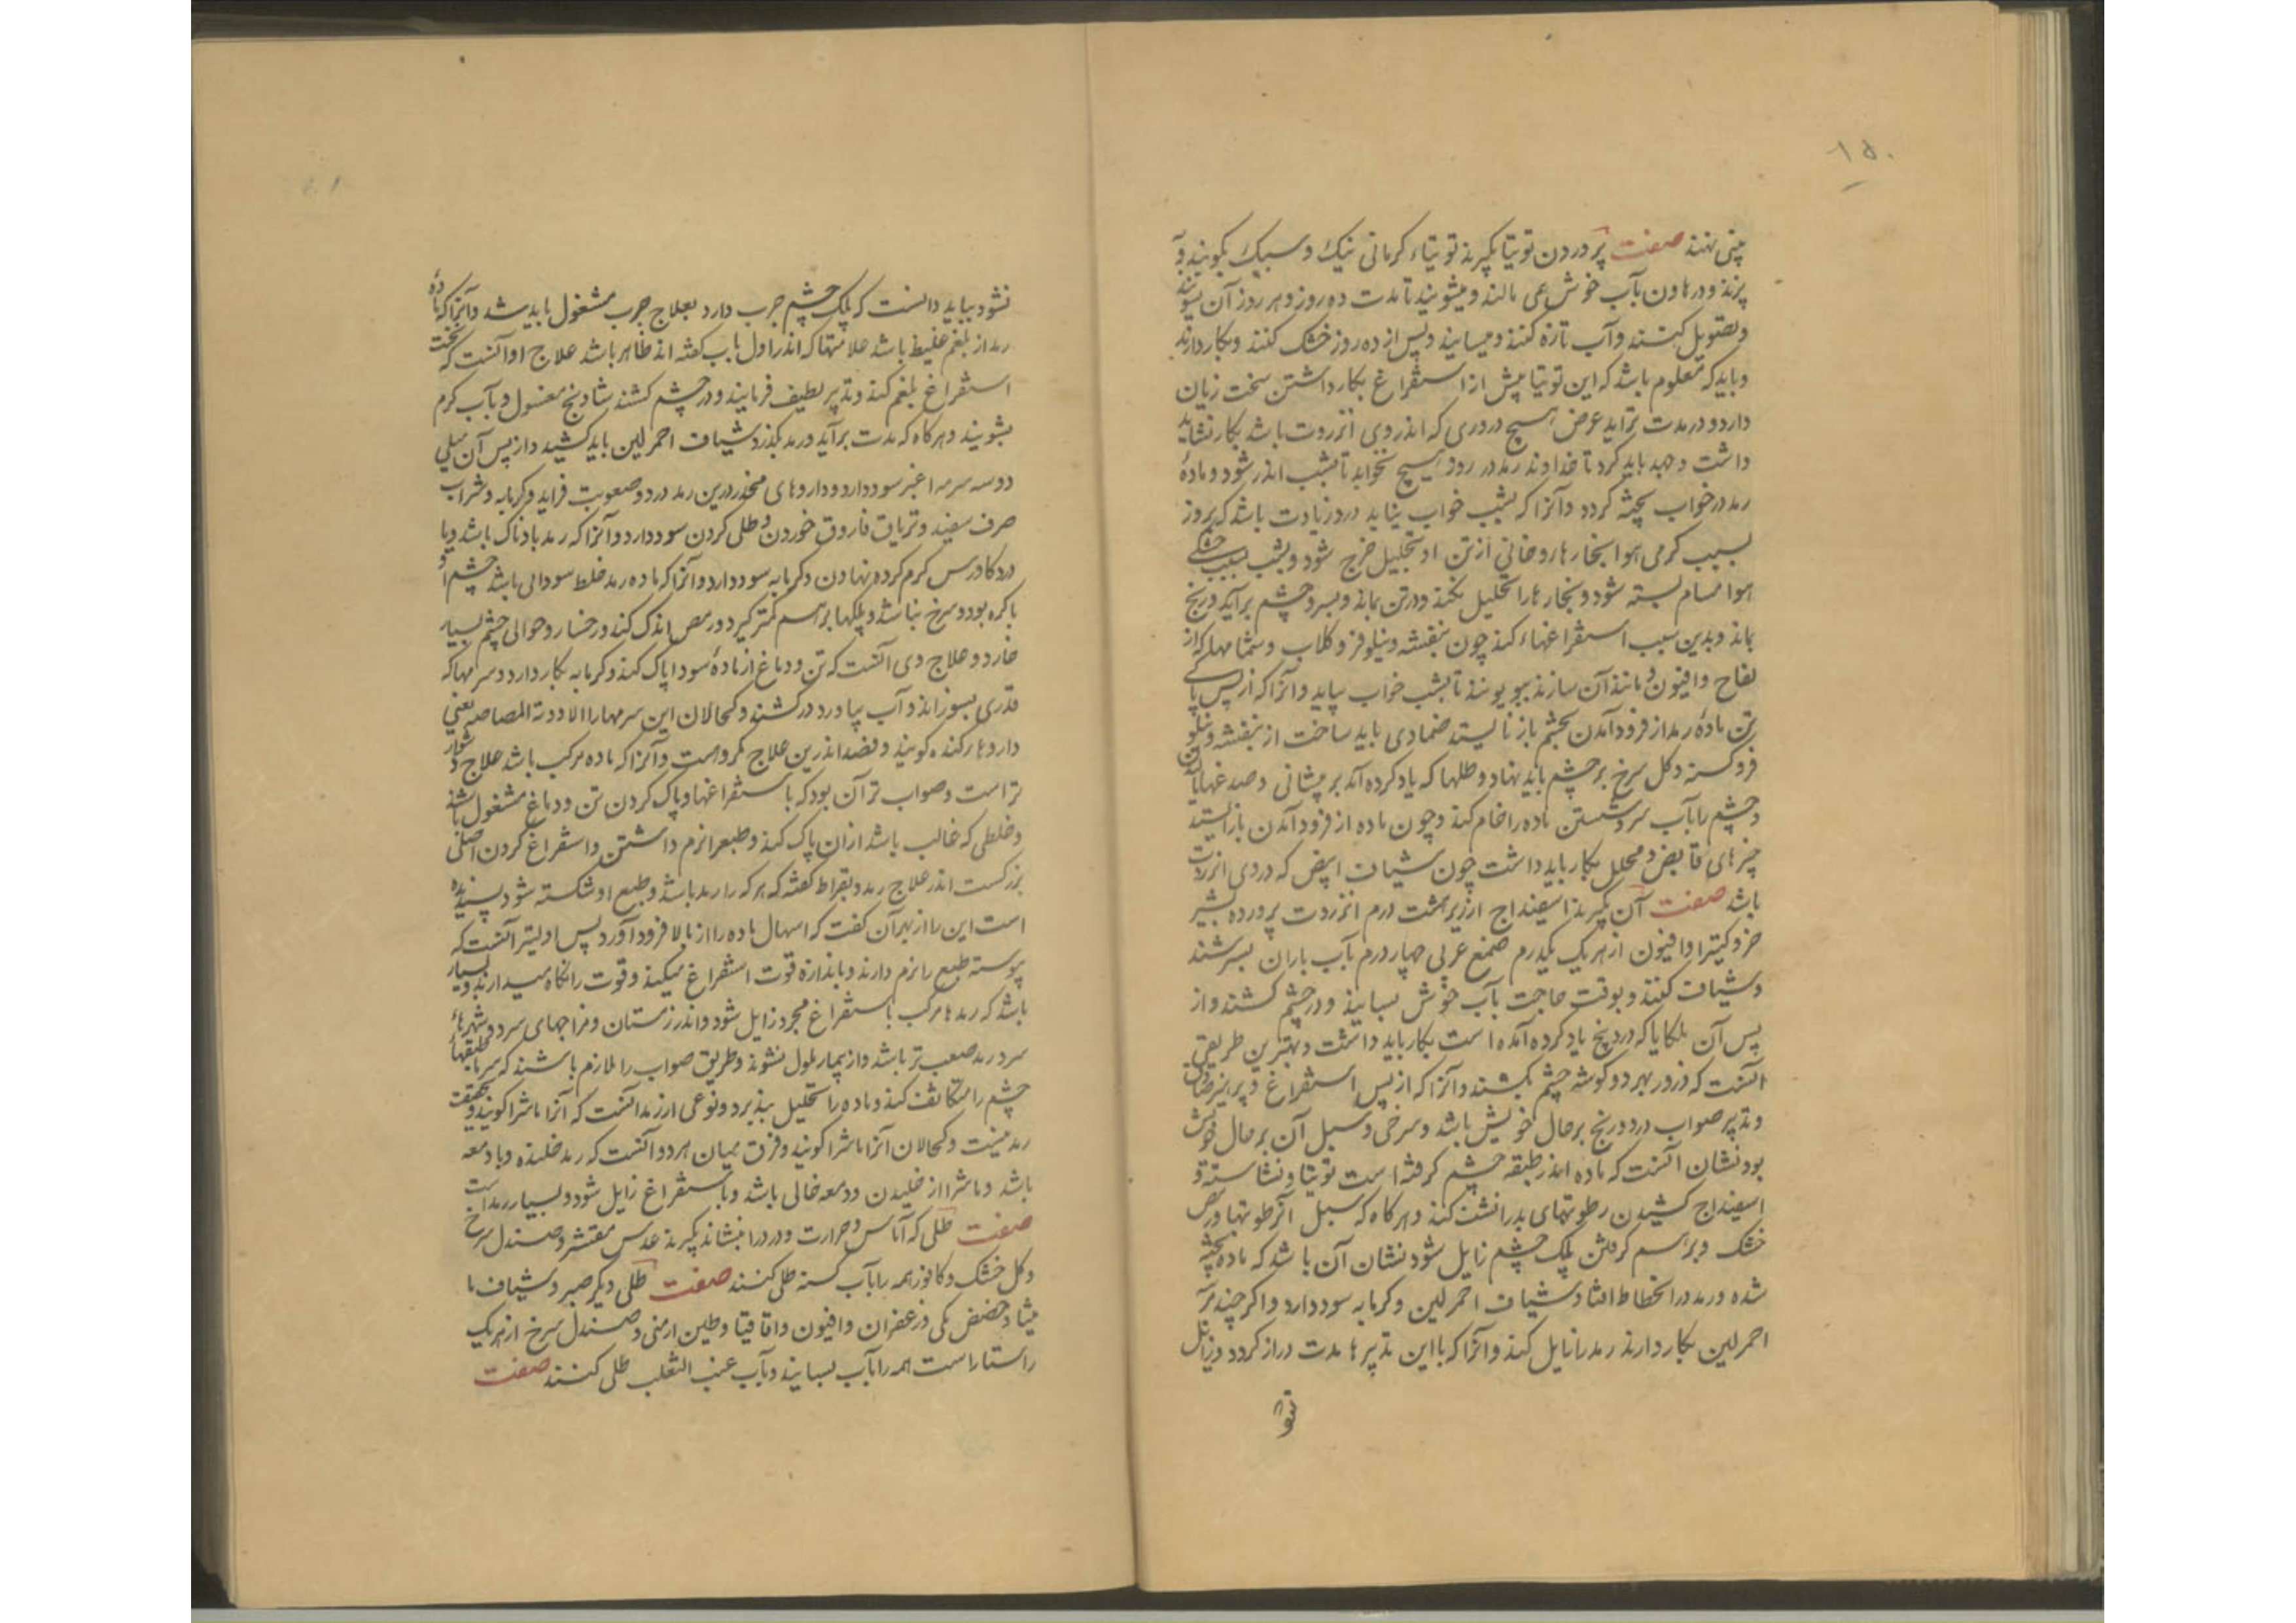 ۱۵۰
بینی نهند صفت پروردن توتیا بگیرند توتیاء کرمانی نیک و سبک بکوبند و
بپزند و در هاون بآب خوش همی مالند و میشویند تا مدت ده روز و هر روز آن بشویند
و بصتویل کنند و آب تازه کنند و میسایند و پس از ده روز خشک کنند و بکار دارند
و باید که معلوم باشد که این توتیا پیش از استفراغ بکار داشتن سخت زیان
دارد و در مدت تزاید عرض هیچ دروری که اندر وی انزروت باشد بکار نشاید
داشت و جهد باید کرد تا خداوند رمد در روز هیچ نخوابد تا بشب اندر شود و مادهٔ
رمد در خواب پخته گردد و آنرا که بشب خواب نیاید درو زیادت باشد که بروز
بسبب گرمی هوا بخارها روحانی از تن او بتحلیل خرج شود و بشب بسبب خنکی
هوا مسام بسته شود و بخارها را تحلیل نکند و در تن بماند و بسر و چشم برآید و رنج
بماند و بدین سبب استفراغهاء کند چون بنفشه و نیلوفر و گلاب و شمامها که از
لفاح و افیون و مانند آن سازند ببویند تا بشب خواب بیاید و آنرا که از پس پاکی
تن مادهٔ رمد از فرود آمدن بچشم باز نایستد ضمادی باید ساخت از بنفشه و نیلو
فر و کسنه و گل سرخ بر چشم باید نهاد و طلیها که یاد کرده آمد بر پیشانی و صدغها مالیدن
و چشم را بآب سرد شستن ماده را خام کند و چون ماده از فرود آمدن باز ایستد
چیزهای قابض و محلل بکار باید داشت چون شیاف ابیض که در وی انزروت
باشد صفت آن بگیرند اسفیداج ارزیز هشت درم انزروت پرورده بشیر
خر و کتیرا و افیون از هر یک یکدرم صمغ عربی چهار درم بآب باران بسرشند
و شیاف کنند و بوقت حاجت بآب خوش بسایند و در چشم کشند و از
پس آن ملکایا که در رنج یاد کرده آمده است بکار باید داشت و بهترین طریقی
آنست که ذرور بهر دو گوشه چشم بکشند و آنرا که از پس استفراغ و پرهیز صادق
و تدبیر صواب درد و رنج بر حال خویش باشد و سرخی و سبل آن بر حال خویش
بود نشان آنست که ماده اندر طبقه چشم گرفته است توتیا و نشاسته و
اسفیداج کشیدن رطوبتهای بد را نشف کند و هرگاه که سبل از رطوبتها و رمص
خشک و بر هم گرفتن پلک چشم زایل شود نشان آن باشد که ماده پخته
شده و رمد در انحطاط افتاد و شیاف احمر لین و گرمابه سود دارد و اگر چند مر
احمر لین بکار دارند رمد را زایل کند و آنرا که با این تدبیرها مدت دراز گردد و زایل
نشود
نشود بباید دانست که پلک چشم جرب دارد بعلاج جرب مشغول باید شد و آنرا که ماده
رمد از بلغم غلیظ باشد علامتها که اندر اول باب گفته اند ظاهر باشد علاج او آنست که نخست
استفراغ بلغم کند و تدبیر لطیف فرمایند و در چشم کشند شادنج مغسول و بآب گرم
بشویند و هرگاه که مدت برآید و رمد بگذرد شیاف احمر لین باید کشید و از پس آن میلی
دو سه سرمه اغبر سود دارد و داروهای مخدر درین رمد درد و صعوبت فزاید و گرمابه و شراب
صرف سفید و تریاق فاروق خوردن و طلی کردن سود دارد و آنرا که رمد بادناک باشد و با
درد گاورس گرم کرده نهادن و گرمابه سود دارد و آنرا که ماده رمد خلط سودائی باشد چشم او
با کره بود و سرخ نباشد و پلکها بر هم کمتر گیرد و رمص اندک کند و رخسار و حوالی چشم بسیار
خارد و علاج وی آنست که تن و دماغ از مادهٔ سودا پاک کند و گرمابه بکار دارد و سرمها که
قدری بسوزاند و آب بیاورد درکشند و کحالان این سرمها را الادویة المصاصه یعنی
داروها مرکنده گویند و فصد اندرین علاج مکروهست و آنرا که ماده مرکب باشد علاج دشوار
تر است و صواب تر آن بود که باستفراغها و پاک کردن تن و دماغ مشغول باشند
و خلطی که غالب باشد از آن پاک کند و طبع را نرم داشتن و استفراغ کردن اصلی
بزرگست اندر علاج رمد و بقراط گفته که هر که را رمد باشد و طبع او شکسته شود پسندیده
است این را از بهر آن گفت که اسهال ماده را از بالا فرود آورد پس اولیتر آنست که
پیوسته طبع را نرم دارند و باندازه قوت استفراغ میکنند و قوت را نگاه میدارند و بسیار
باشد که رمدها مرکب باستفراغ مجرد زایل شود و اندر زمستان و مزاجهای سرد و شهرهاء
سرد رمد صعب تر باشد و از بیمار ملول نشوند و طریق صواب را ملازم باشند که سرما طبقها
چشم را متکاثف کند و ماده را تحلیل نپذیرد و نوعی از رمد آنست که آنرا ماشرا گویند و بحقیقت
رمد نیست و کحالان آنرا ماشرا گویند و فرق میان هر دو آنست که رمد خلنده و با دمعه
باشد و ماشرا از خلیدن و دمعه خالی باشد و باستفراغ زایل شود و بسیار رمد است
صفت طلی که آماس و حرارت و درد را بنشاند بگیرند عدس مقشر و صندل سرخ
و گل خشک و کافور همه را بآب کسنه طلی کنند صفت طلی دیگر صبر و شیاف ما
میثا و حضض مکی و زعفران و افیون و اقاقیا و طین ارمنی و صندل سرخ از هر یک
راستاراست همه را بآب بسایند و بآب عنب الثعلب طلی کنند صفت